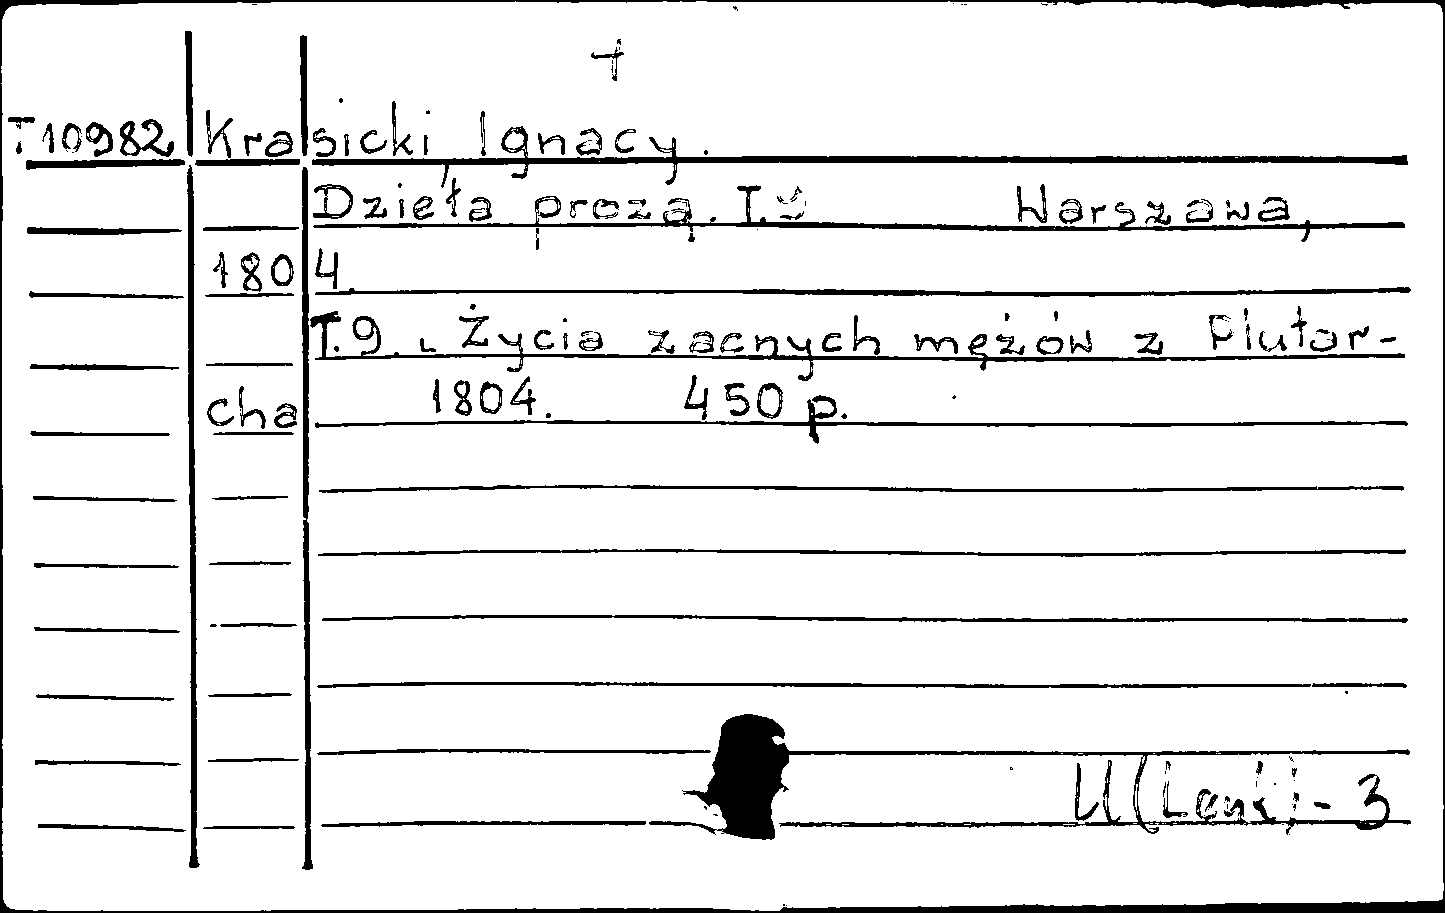 +
T10982 Krasicki, Ignacy.
Dzieła prozą. T.9 Warszawa,
1804.
T.9. Życia zacnych mężów z Plutar-
cha 1804. 450 p.
U(Lenk)-3